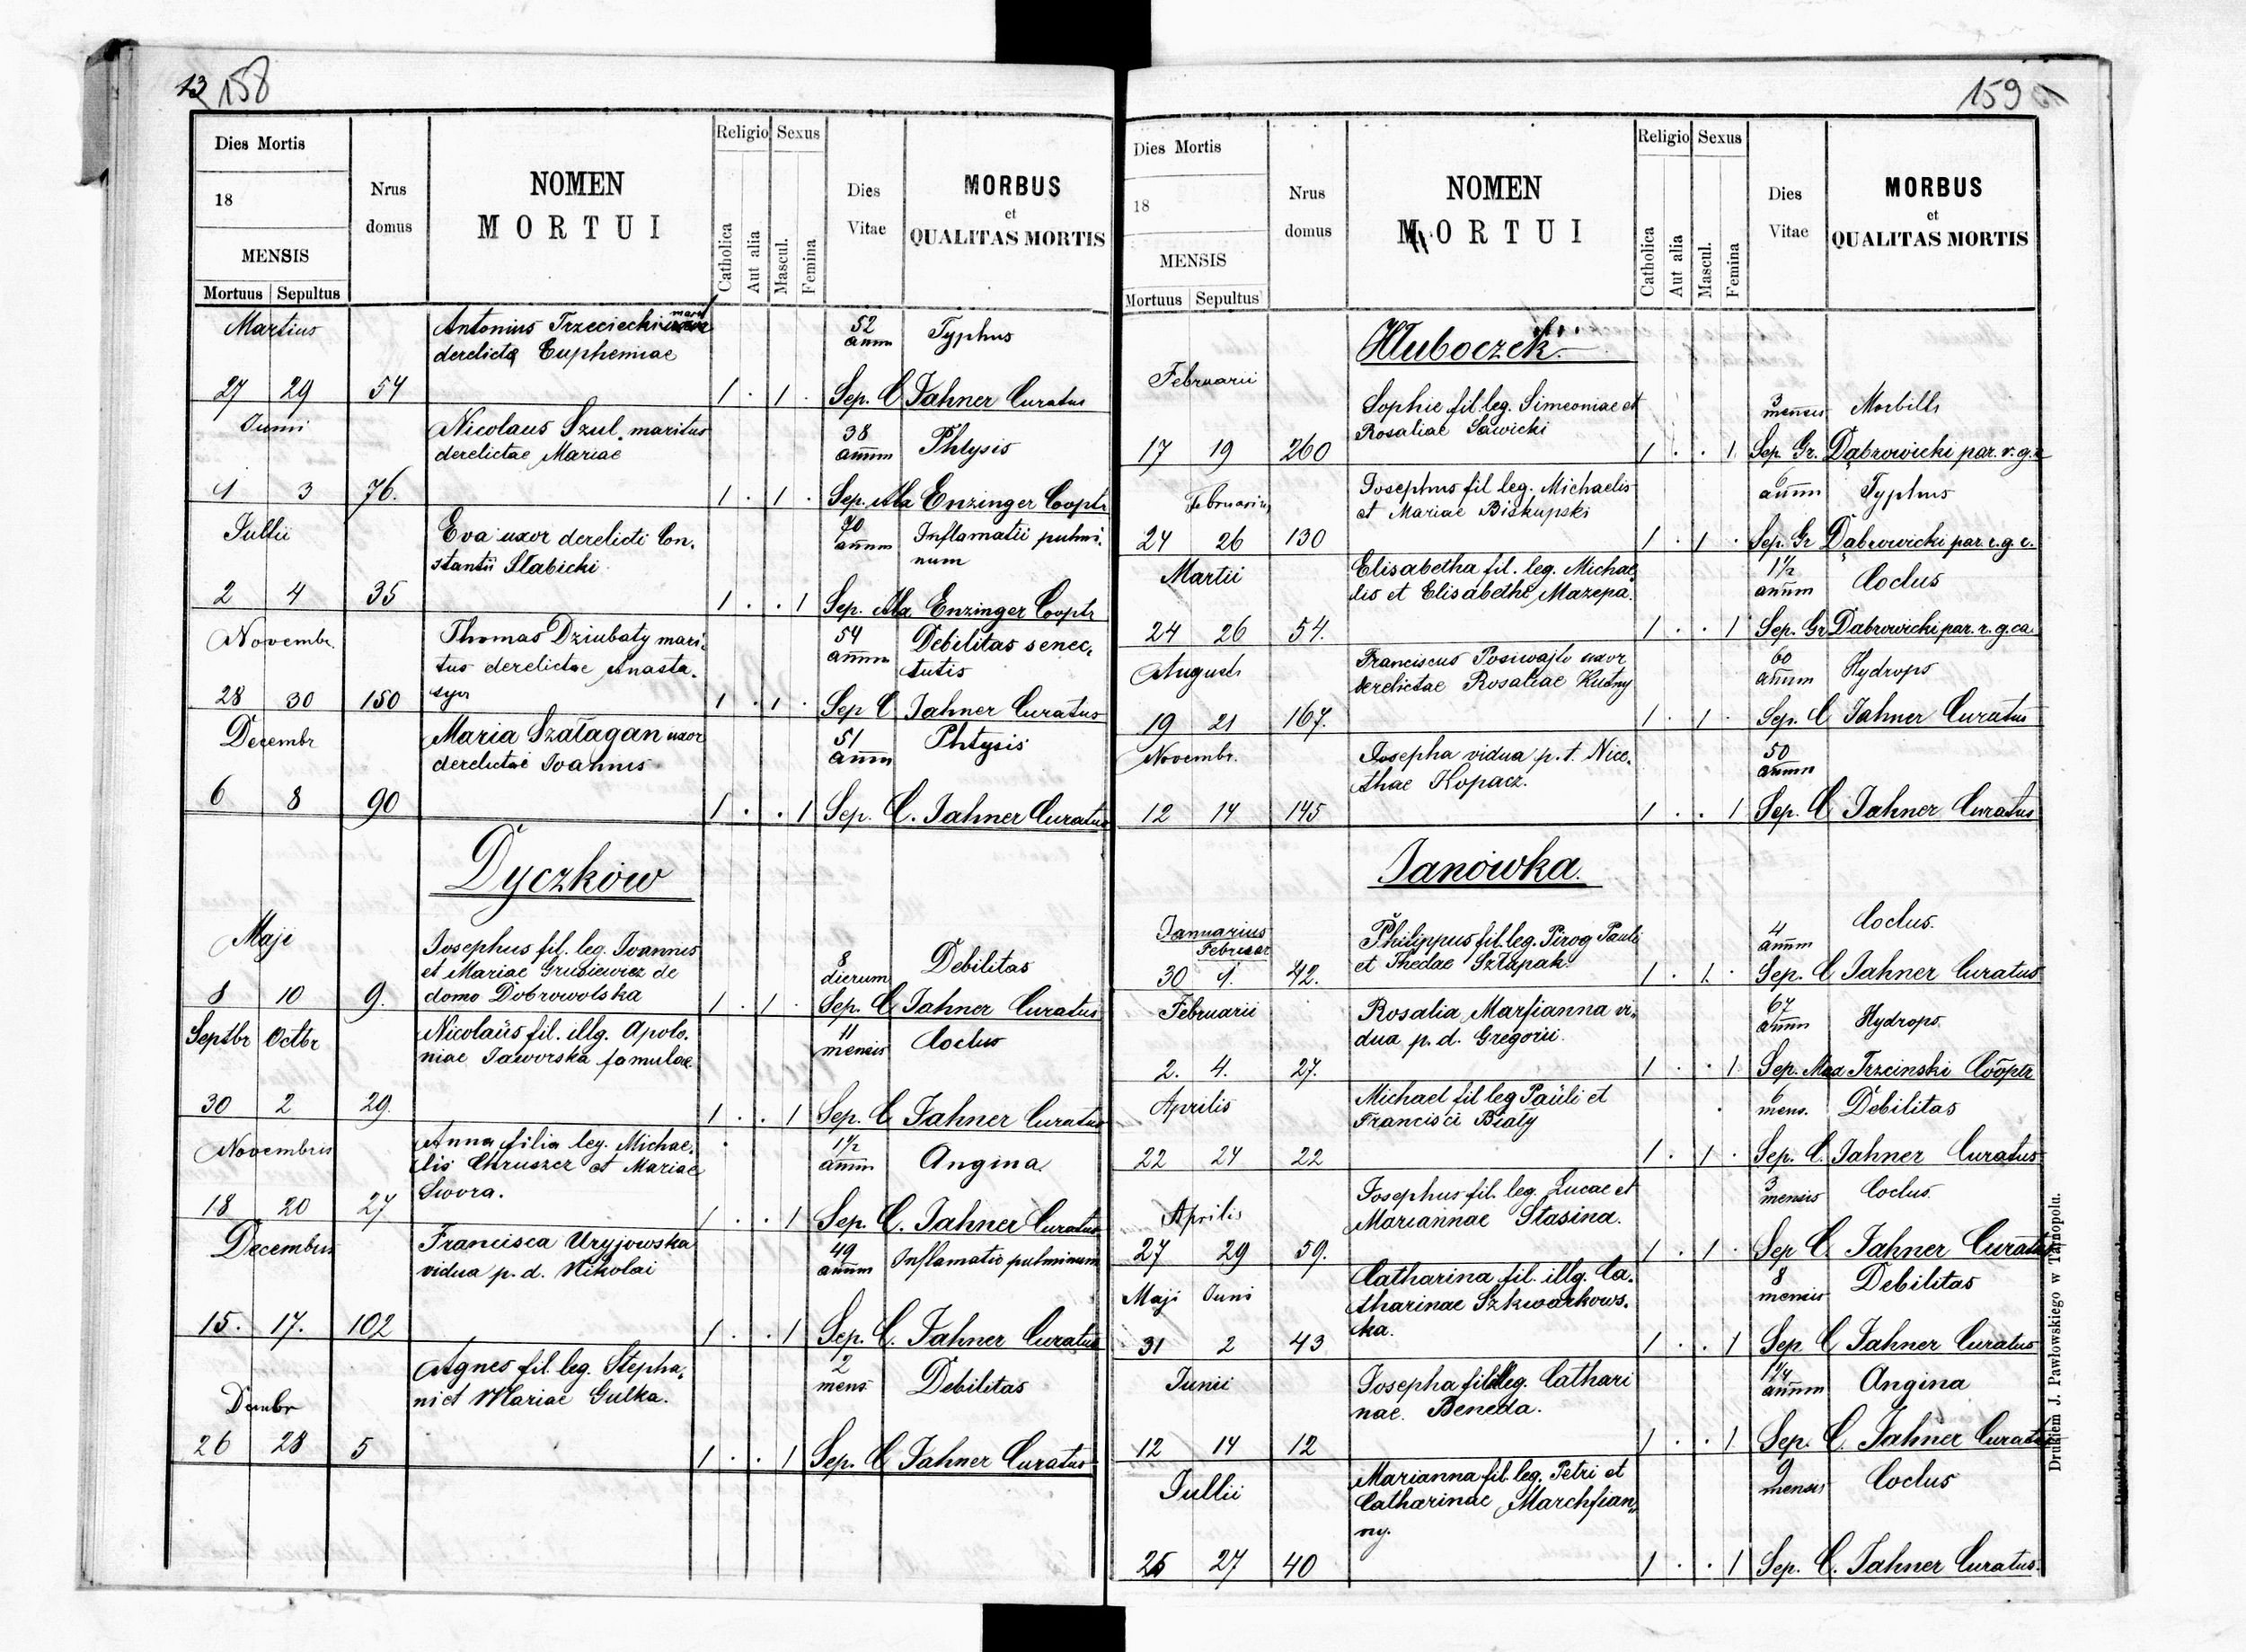 13 158
Dies Mortis
18
MENSIS
Mortuus Sepultus
Nrus
domus
NOMEN
MORTUI
Religio Sexus
Catholica
Aut alia
Mascul.
Femina
Dies
Vitae
MORBUS
et
QUALITAS MORTIS
Martius Antonius Trzeciecki 52 Typhus
derelictae Euphemiae annm
27 29 54 1 . 1 . Sep. C Jahner Curatus
Junii Nicolaus Szul maritus 38 Phtysis
derelictae Mariae annm
1 3 76. 1 . 1 . Sep. Enzinger Cooptr
Jullii Eva uxor derelicti Con. 70 Inflamatii pulmi.
stantii Słabicki annm num
2 4 35 1 . . 1 Sep. Enzinger Cooptr
Novembr. Thomas Dziubaty mari. 54 Debilitas senec.
tus derelictae Anasta. annm tutis
28 30 150 syae 1 . 1 . Sep C Jahner Curatus
Decembr Maria Szałagan uxor 51 Phtysis
derelictae Joannis annm
6 8 90 1 . . 1 Sep. C. Jahner Curatus
Dyczków
Maji Josephus fil. leg. Joannis 8 Debilitas
et Mariae Grusiewicz de dierum
8 10 9. domo Dobrowolska 1 . 1 . Sep. C Jahner Curatus
Septbr Octbr Nicolaüs fil. illg. Apolo. 11 Coclus
niae Jaworska famulae. mensis
30 2 29. 1 . . 1 Sep. C Jahner Curatus
Novembris Anna filia leg. Michae. 1½ Angina
lis Chruszcz et Mariae annm
Swora.
18 20 27 1 . . 1 Sep. C. Jahner Curatus
Decembris Francisca Uryjowska 49 Inflamatio pulminum
vidua p. d. Nikolai annm
15. 17. 102 1 . . 1 Sep. C. Jahner Curatus
Agnes fil. leg. Stepha. 2 Debilitas
Dembr ni et Mariae Gulka. mens
26 28 5 1 . . 1 Sep. C Jahner Curatus
159
Dies Mortis
18
MENSIS
Mortuus Sepultus
Nrus
domus
NOMEN
MORTUI
Religio Sexus
Catholica
Aut alia
Mascul.
Femina
Dies
Vitae
MORBUS
et
QUALITAS MORTIS
Hłuboczek.
Februarii Sophie fil. leg. Simeoniae et 3 Morbilli
Rosaliae Sawicki mensis
17 19 260 1 . . 1 Sep. Gr. Dąbrowicki par. r. g.
Februarius Josephus fil leg. Michaelis 6 Typhus
et Mariae Biskupski annm
24 26 130 1 . 1 . Sep. Gr Dąbrowicki par. r. g. c.
Martii Elisabetha fil. leg. Michae. 1½ Coclus
lis et Elisabethe Mazepa. annm
24 26 54. 1 . . 1 Sep. Gr Dabrowicki par. r. g. ca.
Augusti Franciscus Posiwajło uxor 60 Hydrops
derelictae Rosaliae Kutny annm
19 21 167. 1 . 1 . Sep. C Jahner Curatus
Novembr. Josepha vidua p. t. Nice. 50
thae Kopacz. annm
12 14 145 1 . . 1 Sep. C Jahner Curatus
Janówka.
Januarius Philippus fil. leg. Pirog Pauli 4 Coclus.
Februar et Thedae Szłapak. annm
30 1. 42. 1 . 1 . Sep. C Jahner Curatus
Februarii Rosalia Marfianna vi. 67 Hydrops
dua p. d. Gregorii. annm
2. 4. 27. 1 . . 1 Sep. Max Trzcinski Cooptr
Aprilis Michael fil leg Paüli et 6 Debilitas
Francisci Biały mens.
22 24 22 1 . 1 . Sep. C. Jahner Curatus
Aprilis Josephus fil. leg. Lucae et 3 Coclus.
Mariannae Stasina. mensis
27 29 59. 1 . 1 . Sep C. Jahner Curatus
Maji Juni Catharina fil. illg. Ca. 8 Debilitas
tharinae Szkwarkows. mensis
ka.
31 2 43 1 . . 1 Sep C Jahner Curatus
Junii Josepha fil illeg. Cathari 1¼ Angina
nae. Beneda. annm
12 14 12 1 . . 1 Sep. C. Jahner Curatus
Jullii Marianna fil. leg. Petri et 9 Coclus
Catharinae Marchfian. mensis
ny.
25 27 40 1 . . 1 Sep. C. Jahner Curatus.
Drukiem J. Pawłowskiego w Tarnopolu.